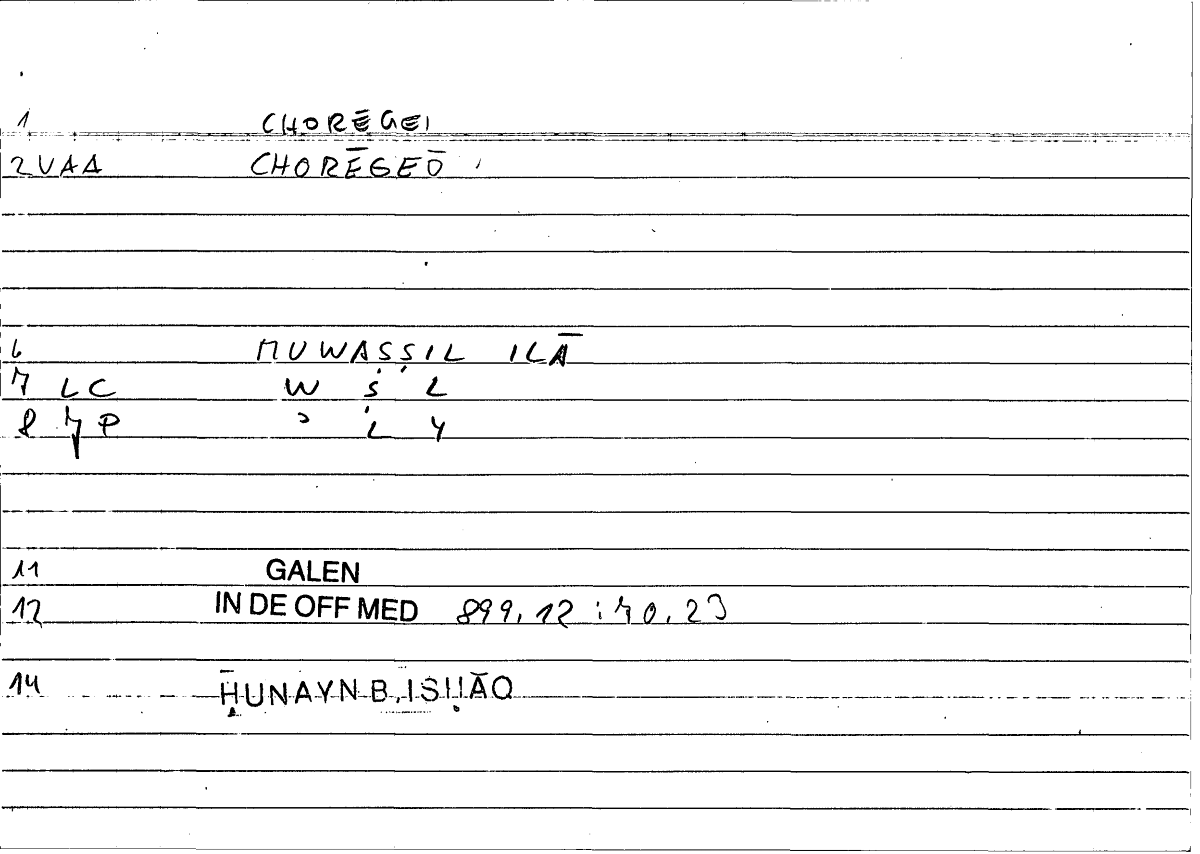 1 CHORĒGEI
2 VAA CHORĒGEŌ
6 MUWAṢṢIL ILĀ
7 LC W Ṣ L
8 7P ʾ L Y
11 GALEN
12 IN DE OFF MED 899,12 : 70,23
14 ḤUNAYN B. ISḤĀQ